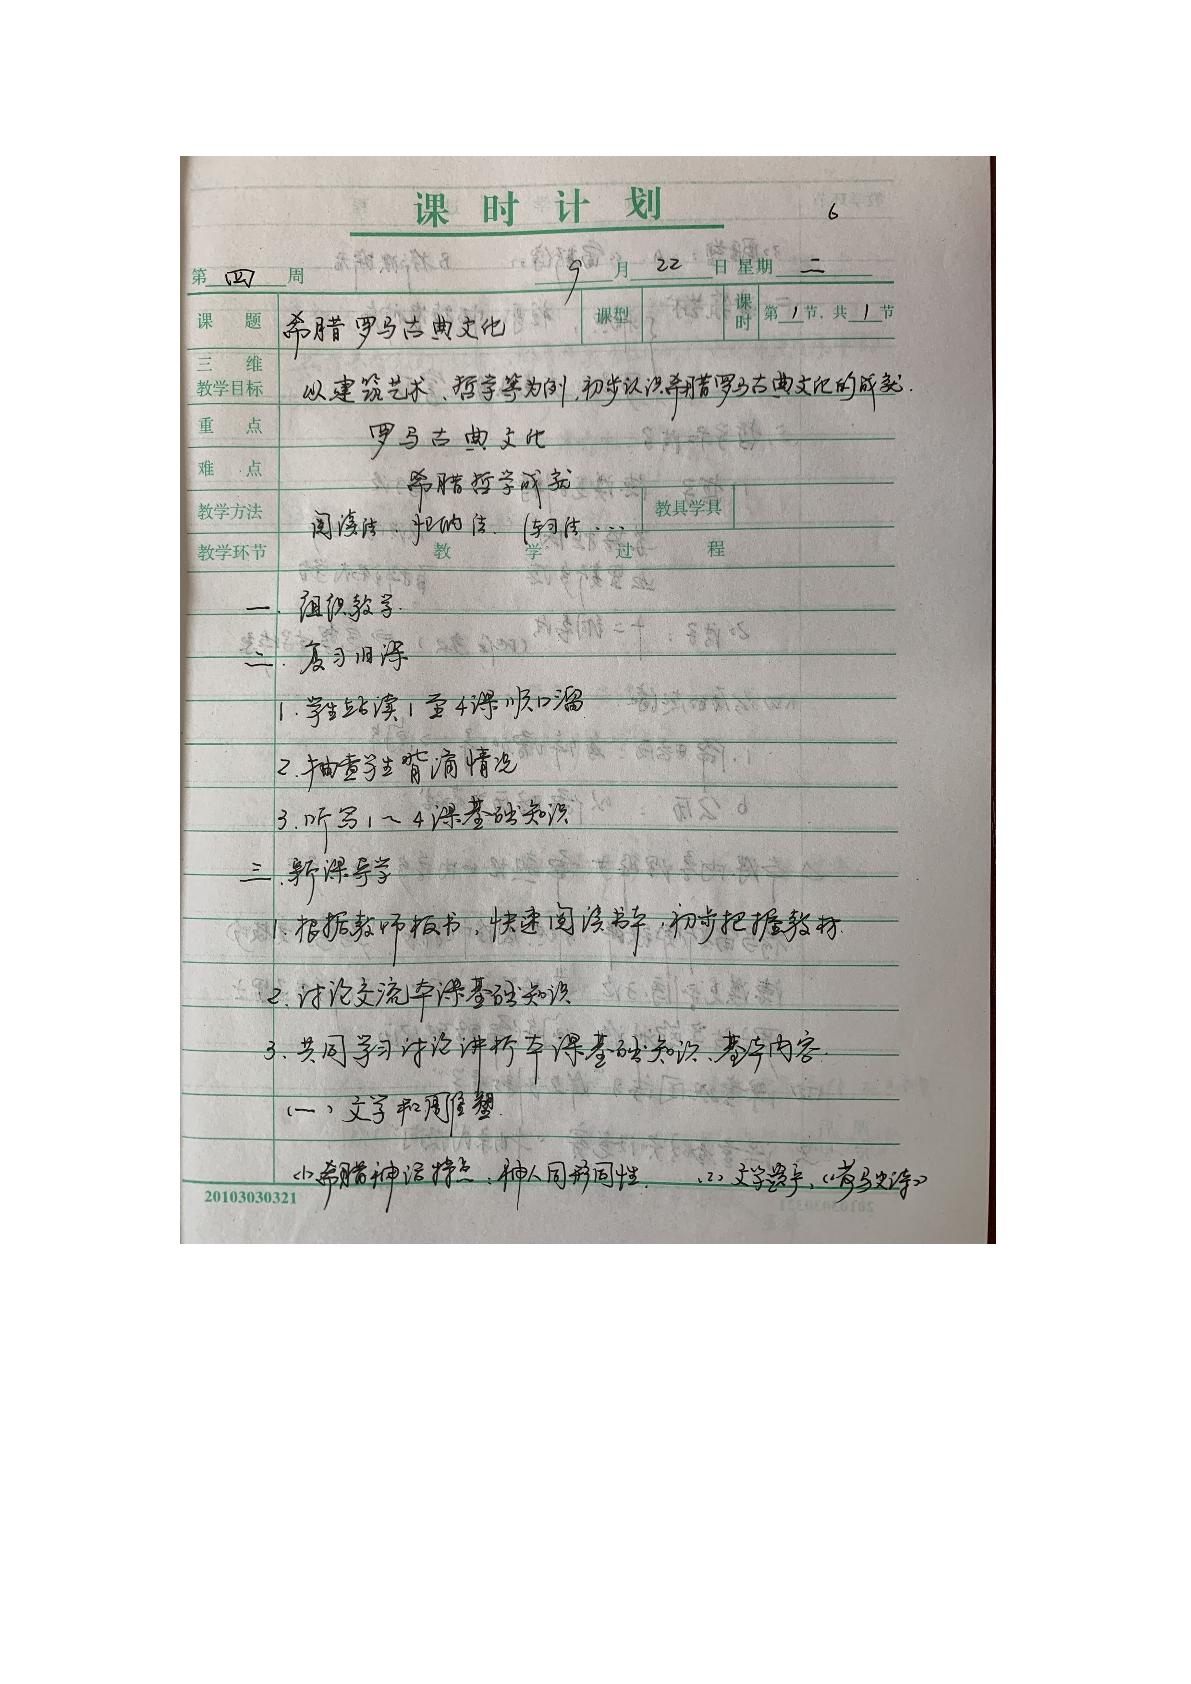 课时计划
6
第 四 周 9 月 22 日 星期 二
课题 希腊罗马古典文化 课型 课时 第1节,共1节
三维教学目标 以建筑艺术、哲学等为例,初步认识希腊罗马古典文化的成就.
重点 罗马古典文化
难点 希腊哲学成就
教学方法 阅读法、归纳法、练习法... 教具学具
教学环节 教学过程
一. 组织教学.
二. 复习旧课
1. 学生站读1至4课顺口溜
2. 抽查学生背诵情况
3. 听写1～4课基础知识
三. 新课导学
1. 根据教师板书,快速阅读书本,初步把握教材.
2. 讨论交流本课基础知识
3. 共同学习讨论讲析本课基础知识、基本内容.
(一) 文学和雕塑.
(1) 希腊神话特点:神人同形同性. (2) 文学 《荷马史诗》
20103030321